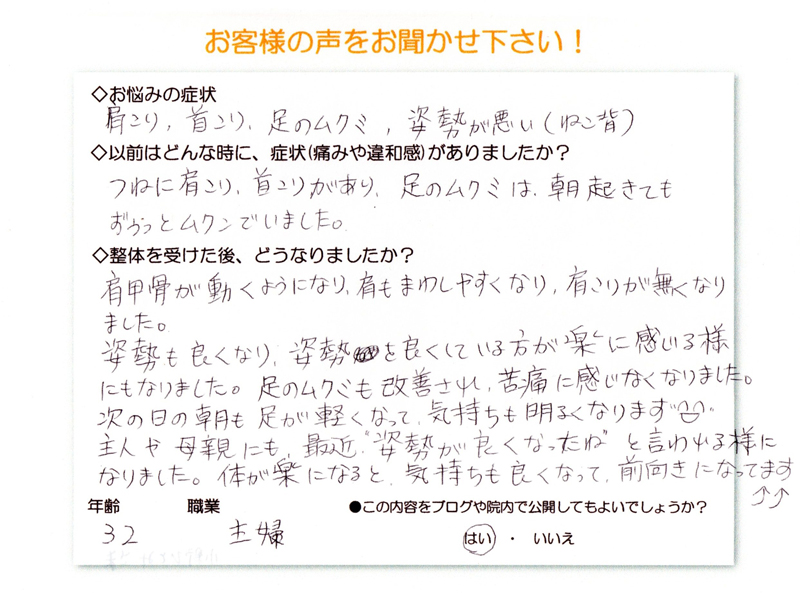 お客様の声をお聞かせ下さい！
◇お悩みの症状
肩こり, 首こり, 足のムクミ, 姿勢が悪い(ねこ背)
◇以前はどんな時に、症状(痛みや違和感)がありましたか？
つねに肩こり, 首こりがあり, 足のムクミは、朝起きても
ずうっとムクンでいました。
◇整体を受けた後、どうなりましたか？
肩甲骨が動くようになり、肩もまわしやすくなり, 肩こりが無くなり
ました。
姿勢も良くなり, 姿勢を良くしている方が"楽"に感じる様
にもなりました。足のムクミも改善され, 苦痛に感じなくなりました。
次の日の朝も足が軽くなって、気持ちも明るくなります
主人や母親にも、最近"姿勢が良くなったね"と言われる様に
なりました。体が楽になると、気持ちも良くなって、前向きになってます
↑↑
年齢 職業 ●この内容をブログや院内で公開してもよいでしょうか？
32 主婦 はい ・ いいえ